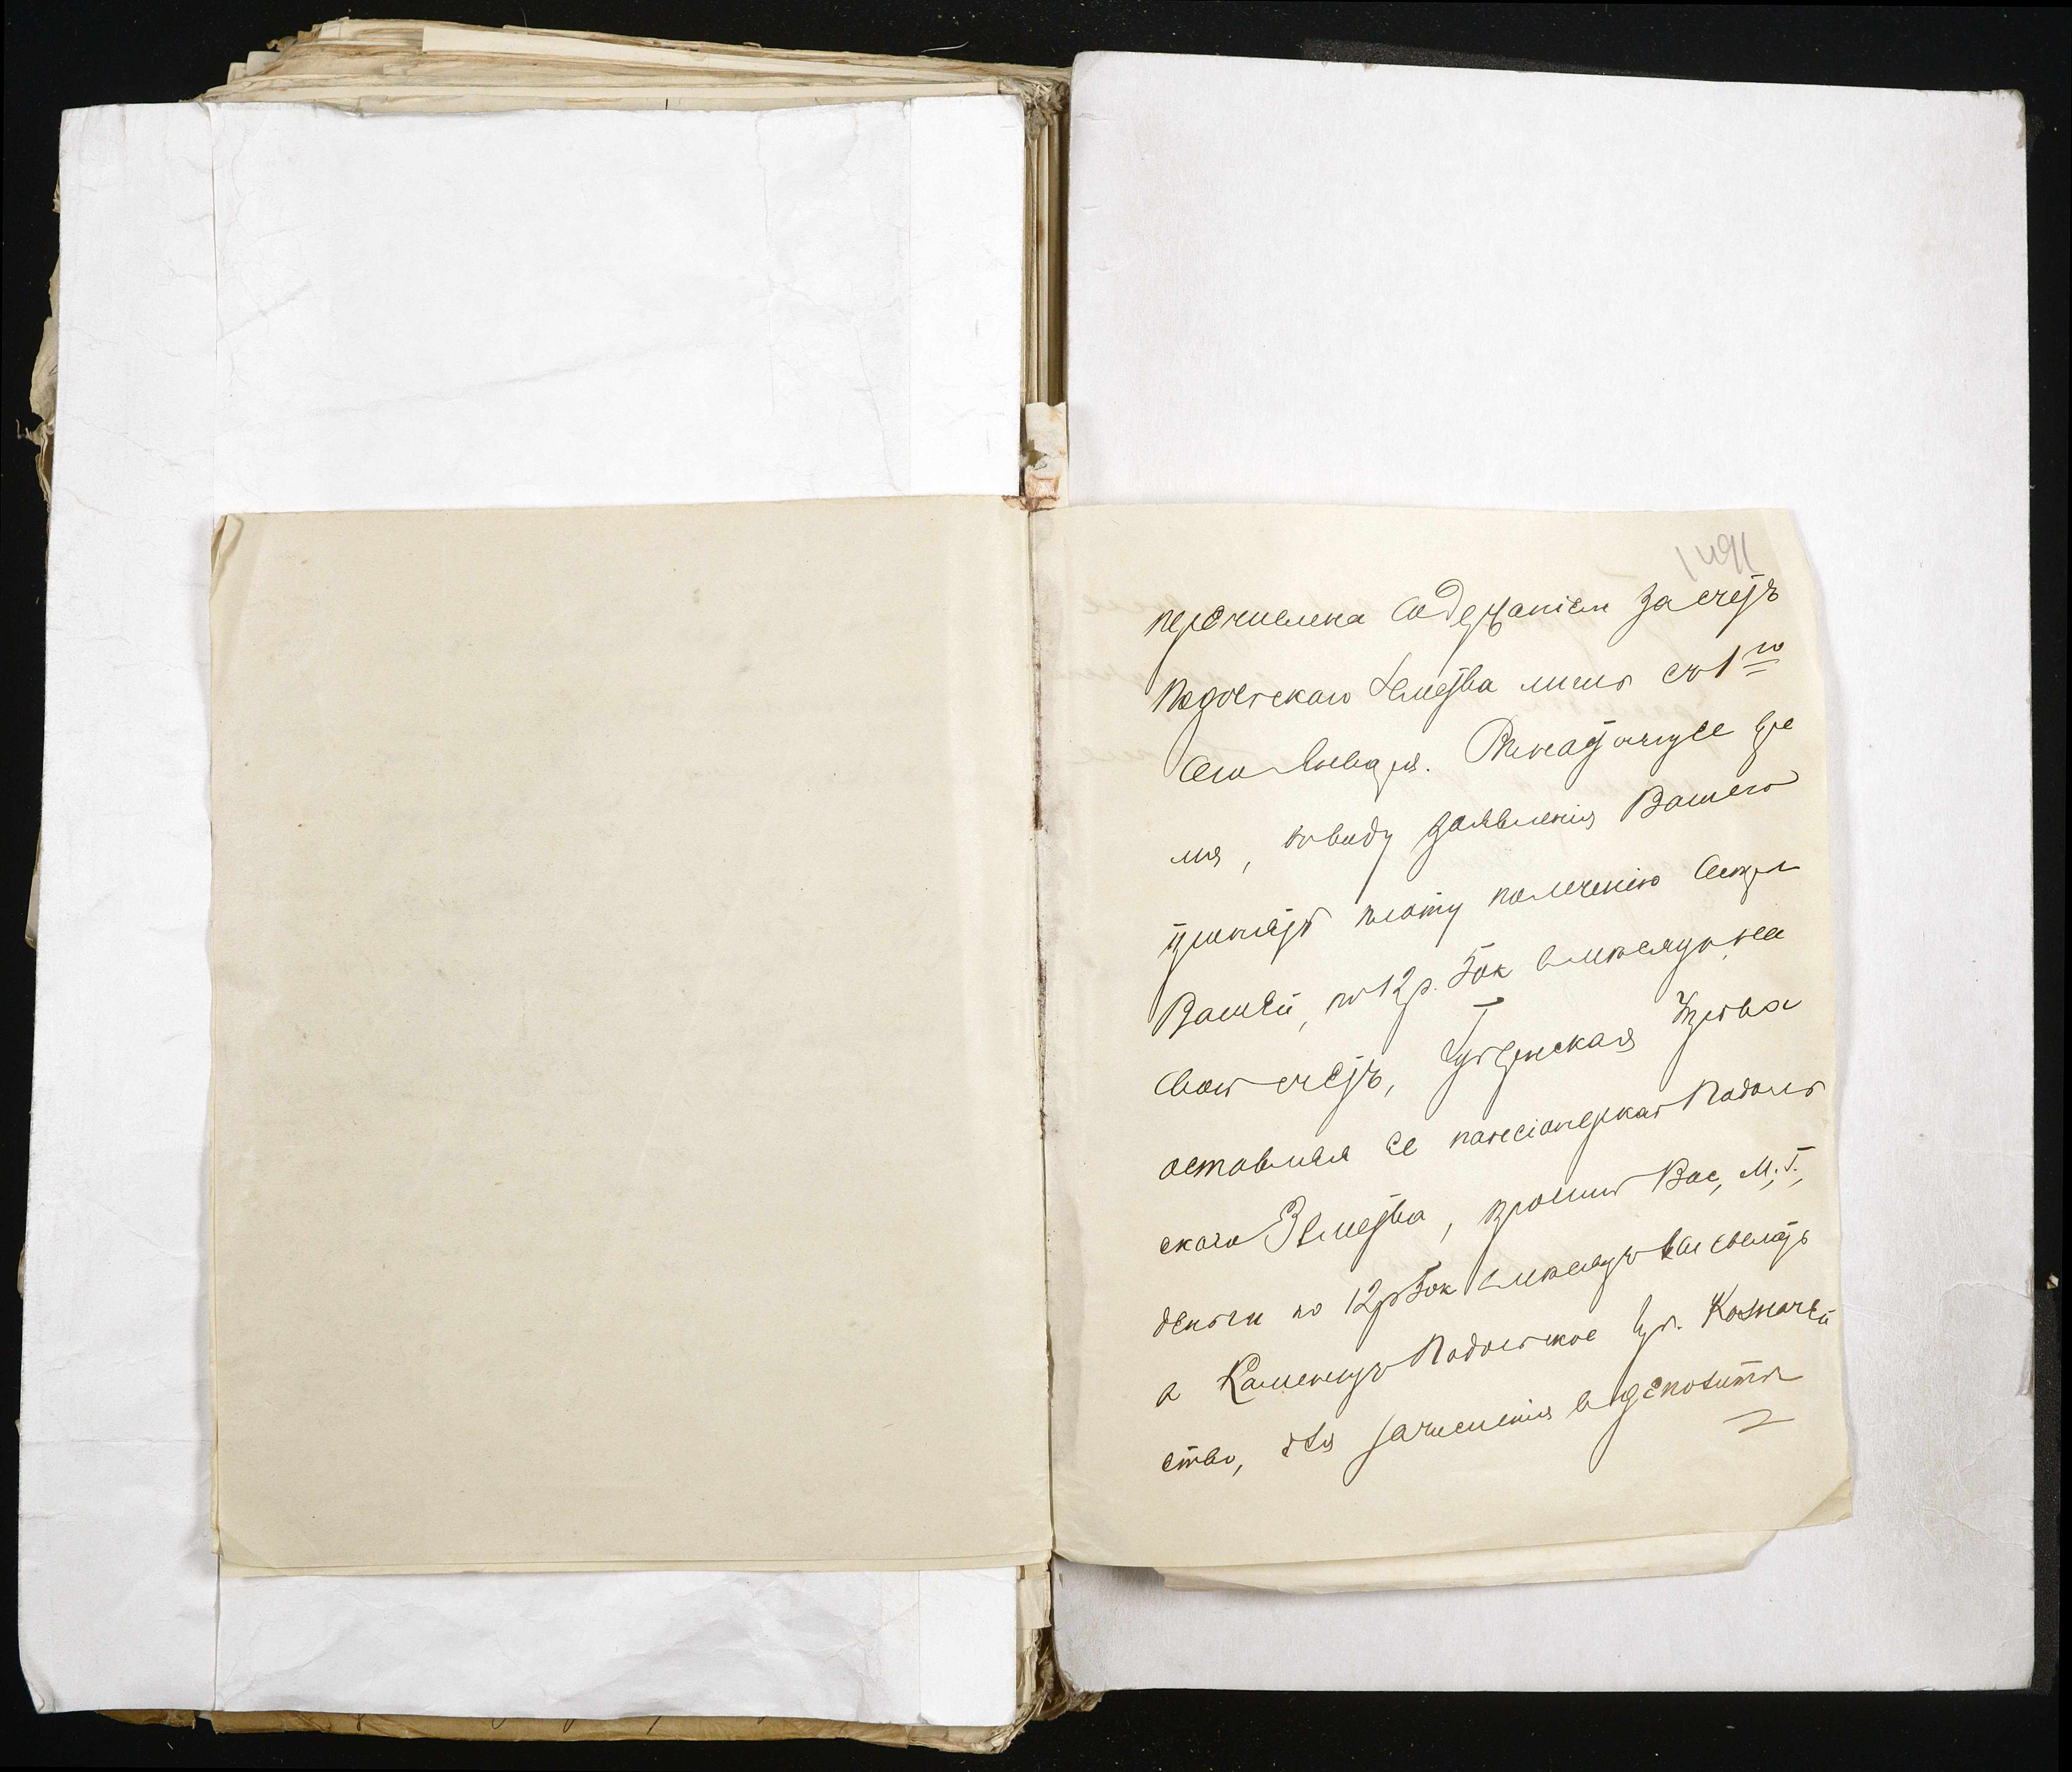 перечислена содержаніем за счетъ
Подольскаго Земства лишь съ 1го
сего Января. Въ настоящее вре
мя, въ виду заявленія Вашего
принять плату по леченію Сестры
Вашей, по 12 р. 50к въ мѣсяцъ, на
свой счетъ, Губернская Управа
оставляя ее пансіонеркой Подоль
скаго Земства, проситъ Вас, М. Г.,
деньги по 12р 50к въ мѣсяцъ высылать
в Каменецъ Подольское Губ. Казначей
ство, для зачисленія въ депозитъ